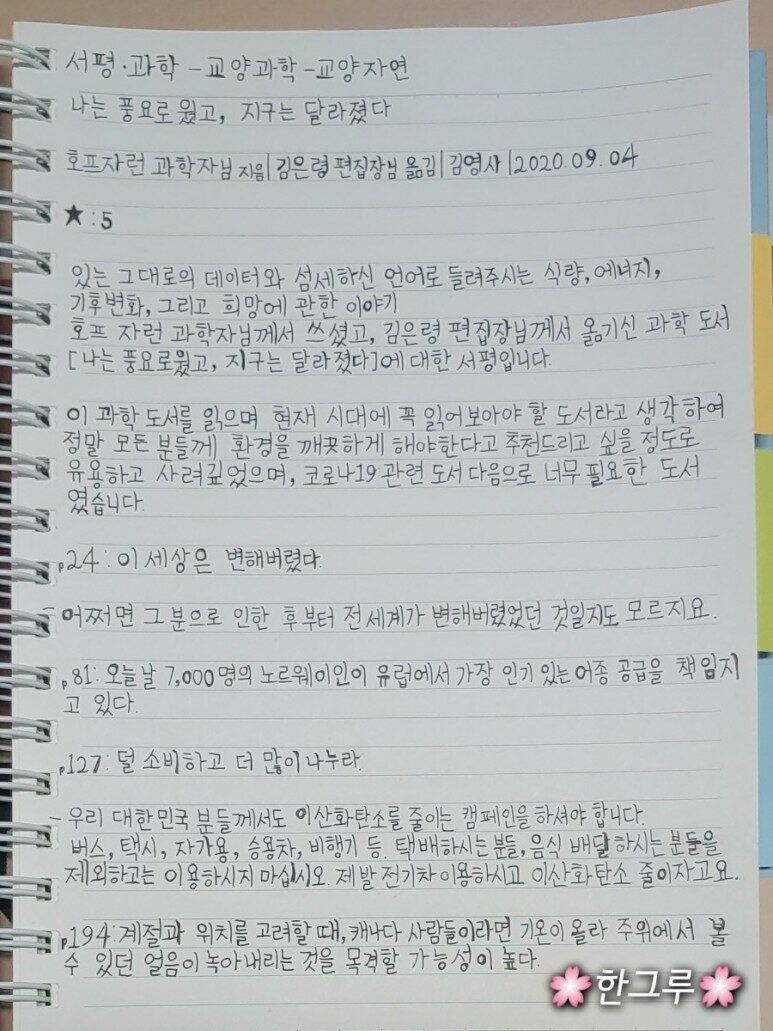 서평·과학 - 교양과학 - 교양자연
나는 풍요로웠고, 지구는 달라졌다
호프자런 과학자님 지음| 김은령 편집장님 옮김| 김영사 |2020.09.04
★:5
있는 그대로의 데이터와 섬세하신 언어로 들려주시는 식량, 에너지,
기후변화, 그리고 희망에 관한 이야기
호프 자런 과학자님께서 쓰셨고, 김은령 편집장님께서 옮기신 과학 도서
[나는 풍요로웠고, 지구는 달라졌다]에 대한 서평입니다.
이 과학 도서를 읽으며 현재 시대에 꼭 읽어보아야 할 도서라고 생각하여
정말 모든 분들께 환경을 깨끗하게 해야한다고 추천드리고 싶을 정도로
유용하고 사려깊었으며, 코로나19 관련 도서 다음으로 너무 필요한 도서
였습니다.
p24: 이 세상은 변해버렸다.
- 어쩌면 그 분으로 인한 후부터 전세계가 변해버렸었던 것일지도 모르지요.
p81: 오늘날 7,000명의 노르웨이인이 유럽에서 가장 인기 있는 어종 공급을 책임지
고 있다.
p127: 덜 소비하고 더 많이 나누라.
- 우리 대한민국 분들께서도 이산화탄소를 줄이는 캠페인을 하셔야 합니다.
버스, 택시, 자가용, 승용차, 비행기 등. 택배하시는 분들, 음식 배달 하시는 분들을
제외하고는 이용하시지 마십시오. 제발 전기차 이용하시고 이산화탄소 줄이자고요.
p194: 계절과 위치를 고려할 때, 캐나다 사람들이라면 기온이 올라 주위에서 볼
수 있던 얼음이 녹아내리는 것을 목격할 가능성이 높다.
🌸한그루🌸